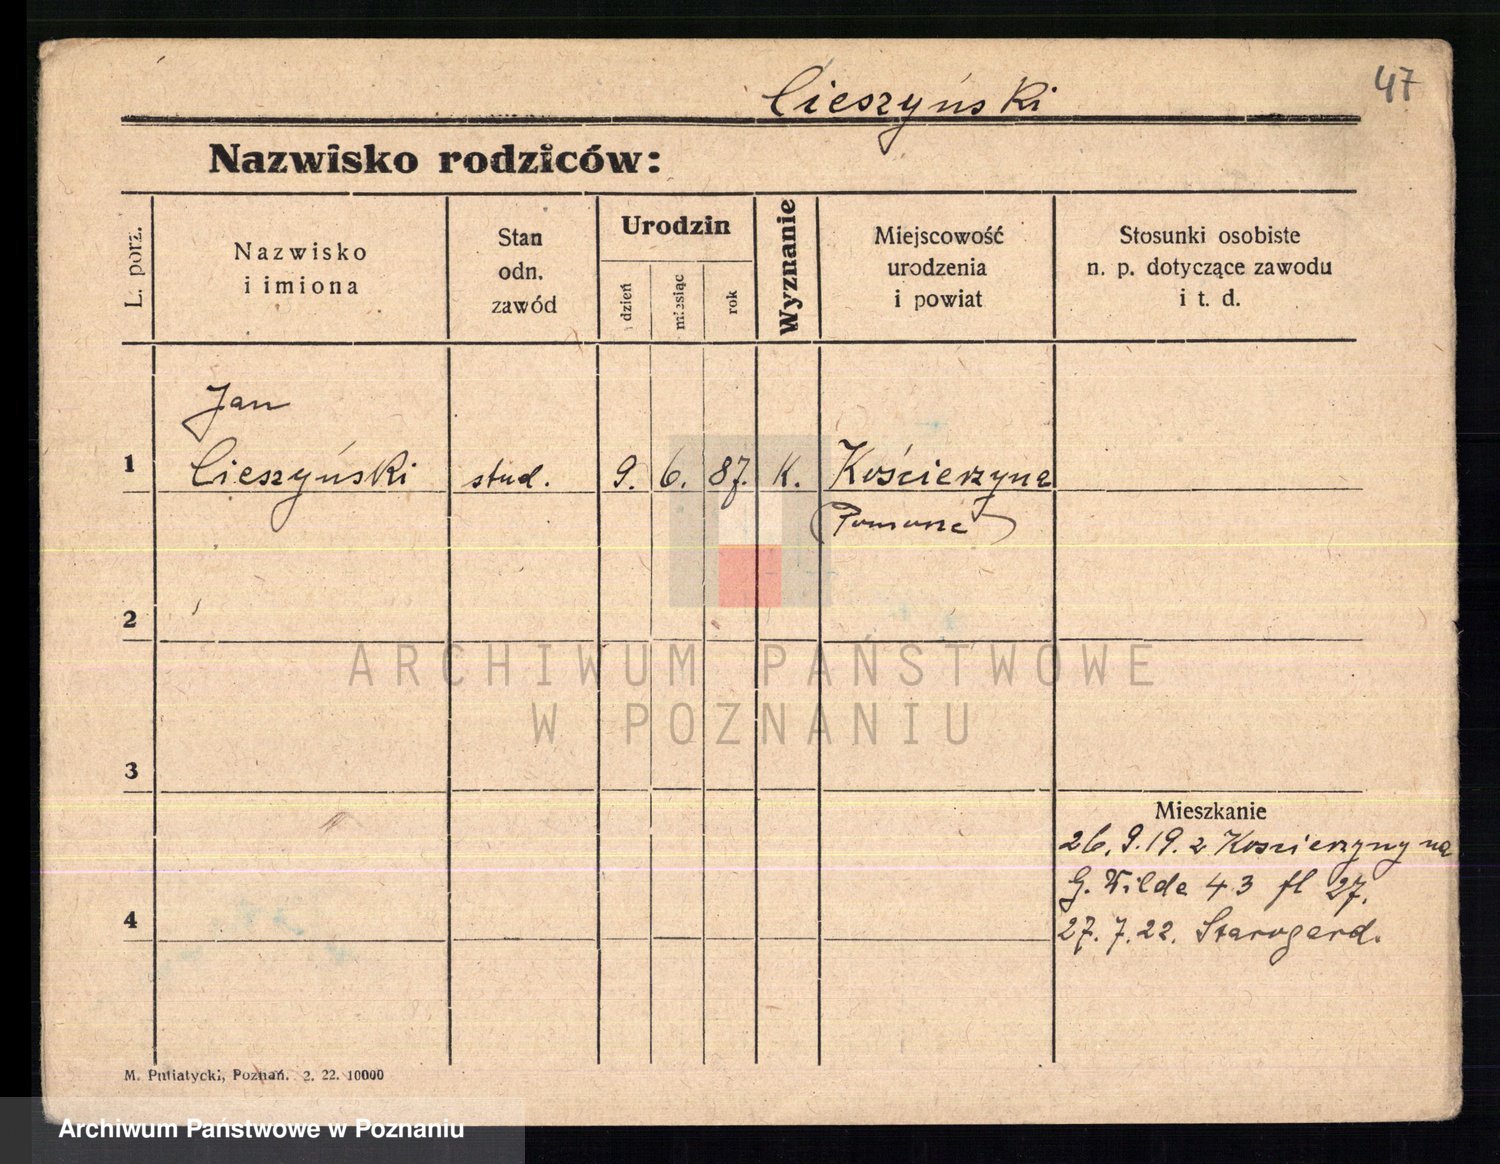 47
Cieszyński
Nazwisko rodziców:
L. porz.
Nazwisko
i imiona
Stan
odn.
zawód
Urodzin
dzień
miesiąc
rok
Wyznanie
Miejscowość
urodzenia
i powiat
Stosunki osobiste
n. p. dotyczące zawodu
i t. d.
Jan
1 Cieszyński stud. 9. 6. 87. K. Kościerzyna
(Pomorze)
2
ARCHIWUM PAŃSTWOWE
W POZNANIU
3
Mieszkanie
26.9.19. z Koscierzyny na
G. Wilda 43 fl 27.
4
27.7.22. Starogard.
M. Putiatycki, Poznań. 2. 22. 10000
Archiwum Państwowe w Poznaniu